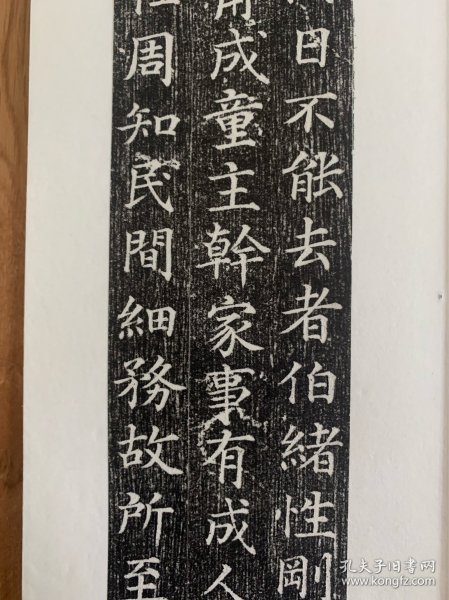 日不能去者伯緒性剛
成童主幹家事有成人
周知民間細務故所至
孔夫子旧书网
www.kongfz.com